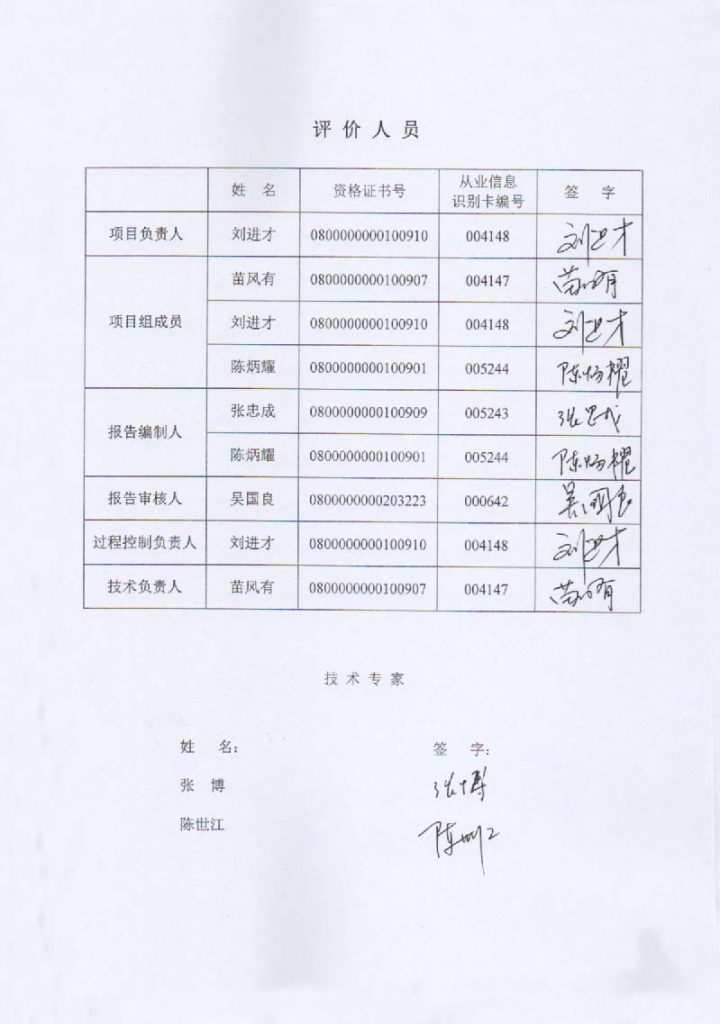 评价人员
姓 名 资格证书号 从业信息识别卡编号 签 字
项目负责人 刘进才 0800000000100910 004148 刘进才
项目组成员 苗风有 0800000000100907 004147 苗风有
刘进才 0800000000100910 004148 刘进才
陈炳耀 0800000000100901 005244 陈炳耀
报告编制人 张忠成 0800000000100909 005243 张忠成
陈炳耀 0800000000100901 005244 陈炳耀
报告审核人 吴国良 0800000000203223 000642 吴国良
过程控制负责人 刘进才 0800000000100910 004148 刘进才
技术负责人 苗风有 0800000000100907 004147 苗风有
技术专家
姓 名: 签 字:
张 博 张博
陈世江 陈世江